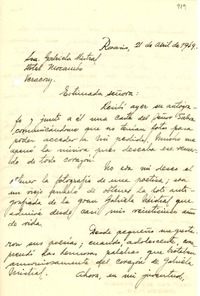 919
Rosario, 21 de abril de 1949.
Sra. Gabriela Mistral
Hotel Mocambo
Veracruz.
Estimada señora:
Recibí ayer su autógra-
fo y junto a él una carta del señor
comunicándome que no tenían fotos para
poder acceder a mi pedido. Mucho me
causó la misiva pues deseaba ese recuer-
do de todo corazón!
No era mi deseo el
obtener la fotografía de una poetisa, era
un viejo anhelo de obtener la foto auto-
grafiada de la gran Gabriela Mistral que
admiro desde casi mis veintiún años
de vida.
Desde pequeña me gusta-
ron sus poesías; cuando, adolescente, com-
prendí las hermosas palabras que brotaban
armoniosamente del corazón de Gabriela
Mistral.
Ahora, en mi juventud,